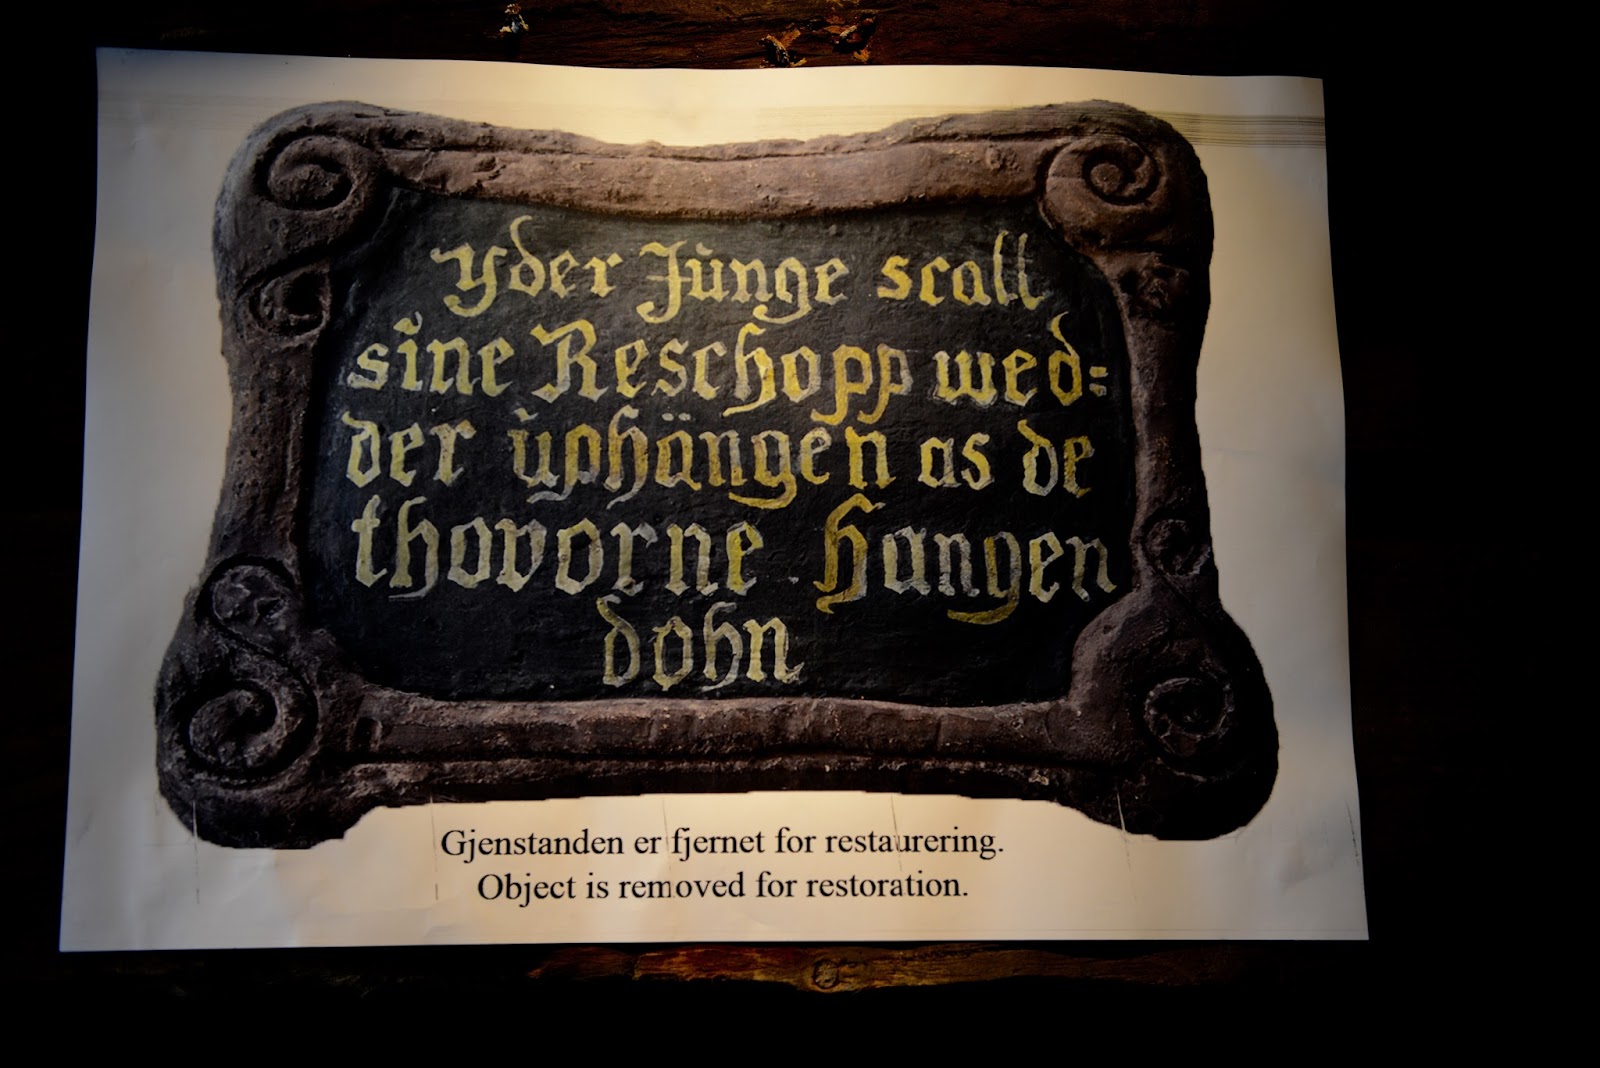 Yder Jŭnge scall
sine Reschopp wed=
der ŭphängen as de
thovorne Hangen
dohn
Gjenstanden er fjernet for restaurering.
Object is removed for restoration.